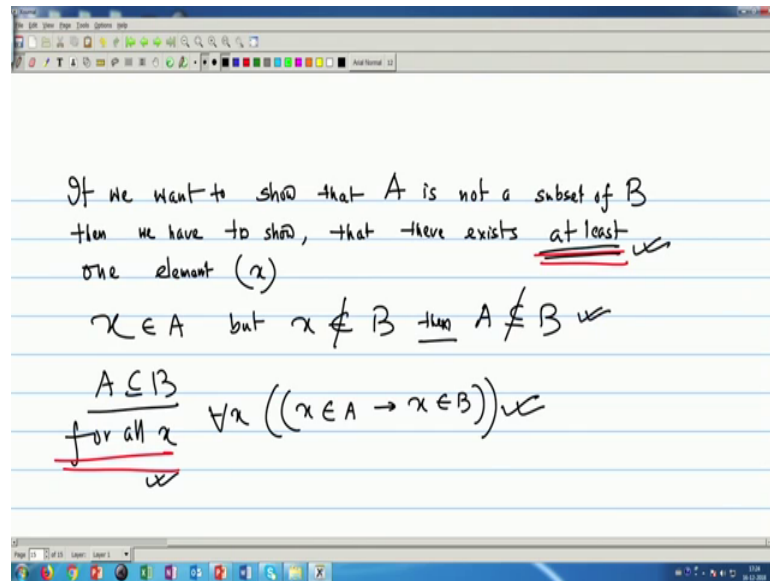 Journal
File Edit View Page Tools Options Help
Arial Normal 12
If we want to show that A is not a subset of B
then we have to show, that there exists at least
one element (x)
x ∈ A but x ∉ B then A ⊈ B
A ⊆ B
for all x ∀x ((x ∈ A → x ∈ B))
Page 15 of 15 Layer: Layer 1
17:24